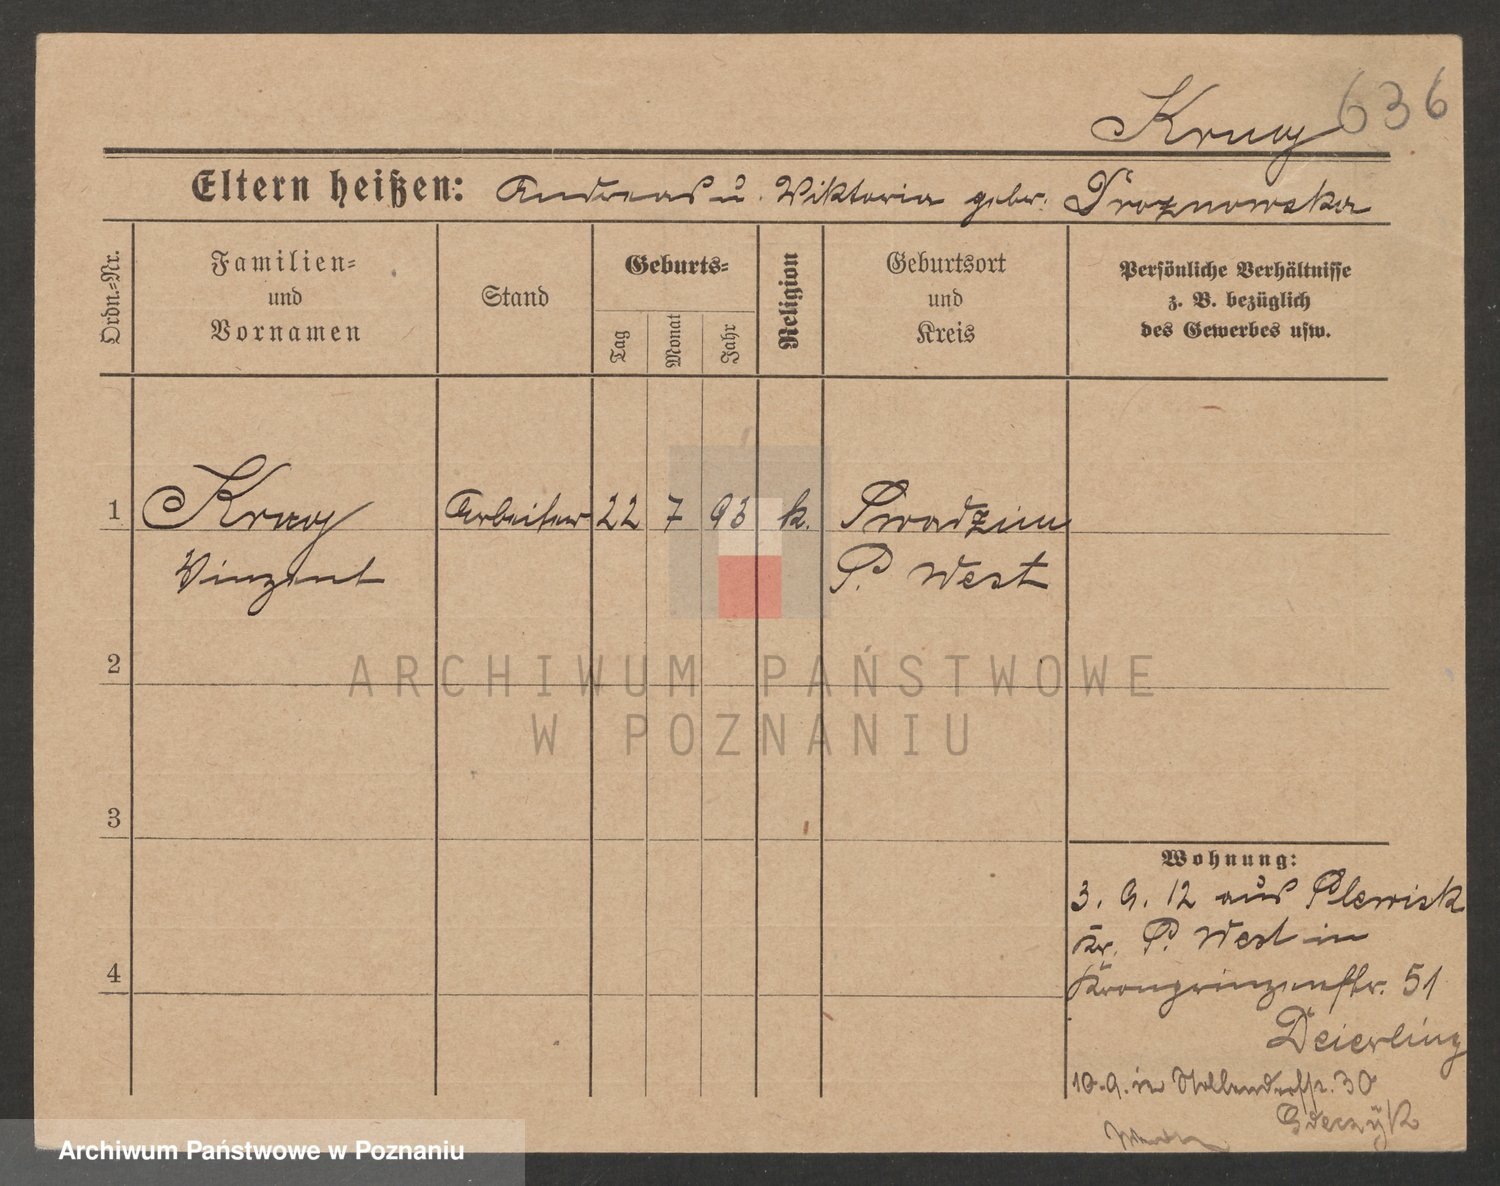 Krug 636
Eltern heißen: Andreas u. Wiktoria gebr. Droznowska
Ordn.-Nr.
Familien-
und
Vornamen
Stand
Geburts-
Tag
Monat
Jahr
Religion
Geburtsort
und
Kreis
Persönliche Verhältnisse
z. B. bezüglich
des Gewerbes usw.
1 Krug Arbeiter 22 7 93 k.
Vinzent P. West
2
3
4
Wohnung:
3. 9. 12 aus Plewisk
Kr. P. West in
Kronprinzenstr. 51
Deierling
10.9. in 30
ARCHIWUM PAŃSTWOWE
W POZNANIU
Archiwum Państwowe w Poznaniu